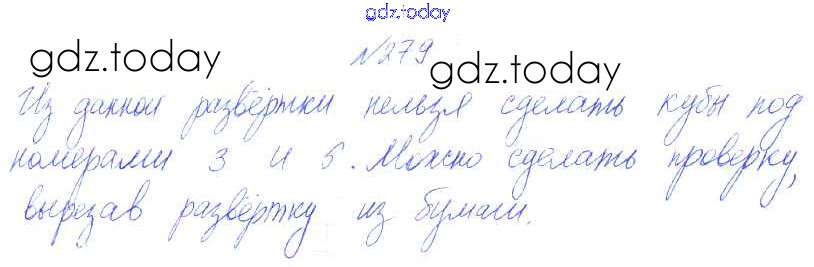 gdz.today
№279
gdz.today gdz.today
Из данной развёртки нельзя сделать кубы под
номерами 3 и 5. Можно сделать проверку,
вырезав развёртку из бумаги.